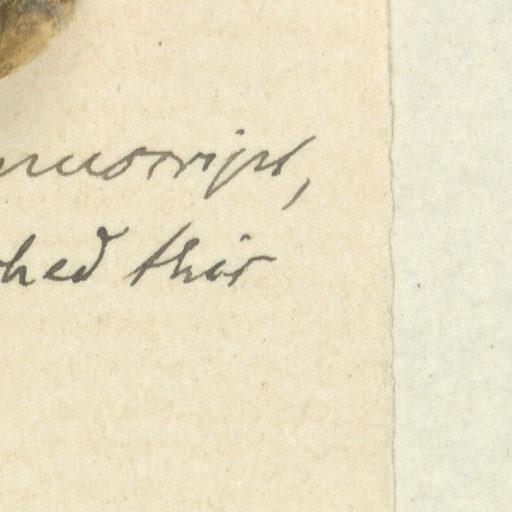 nuscript,
hed this